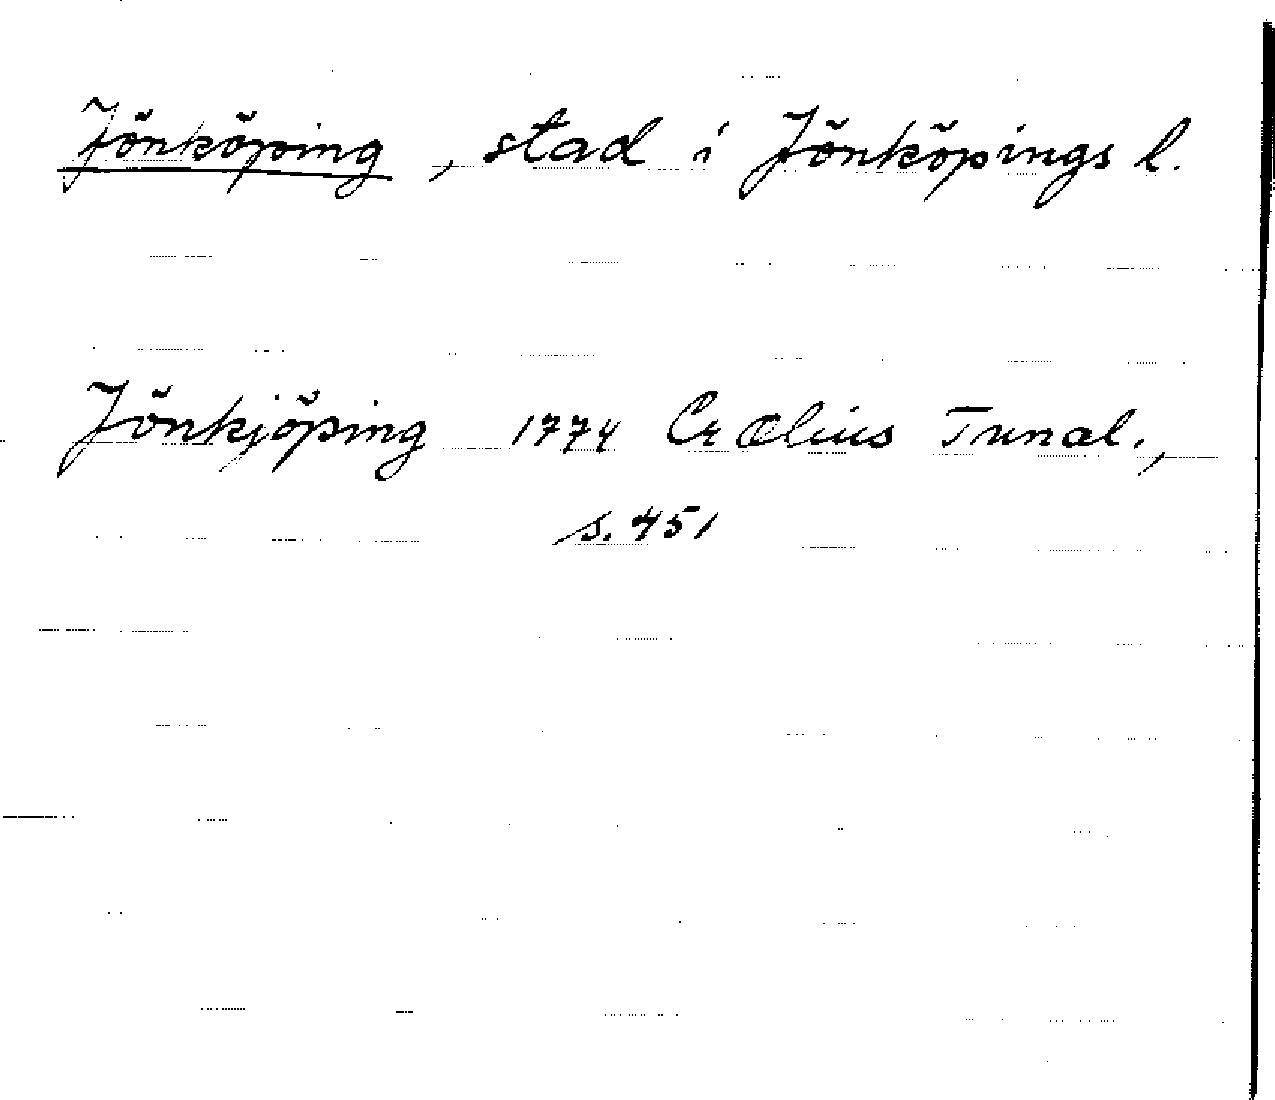 Jönköping, stad i Jönköpings l.
Jönkjöping 1774 Crælius Tunal.,
s. 451